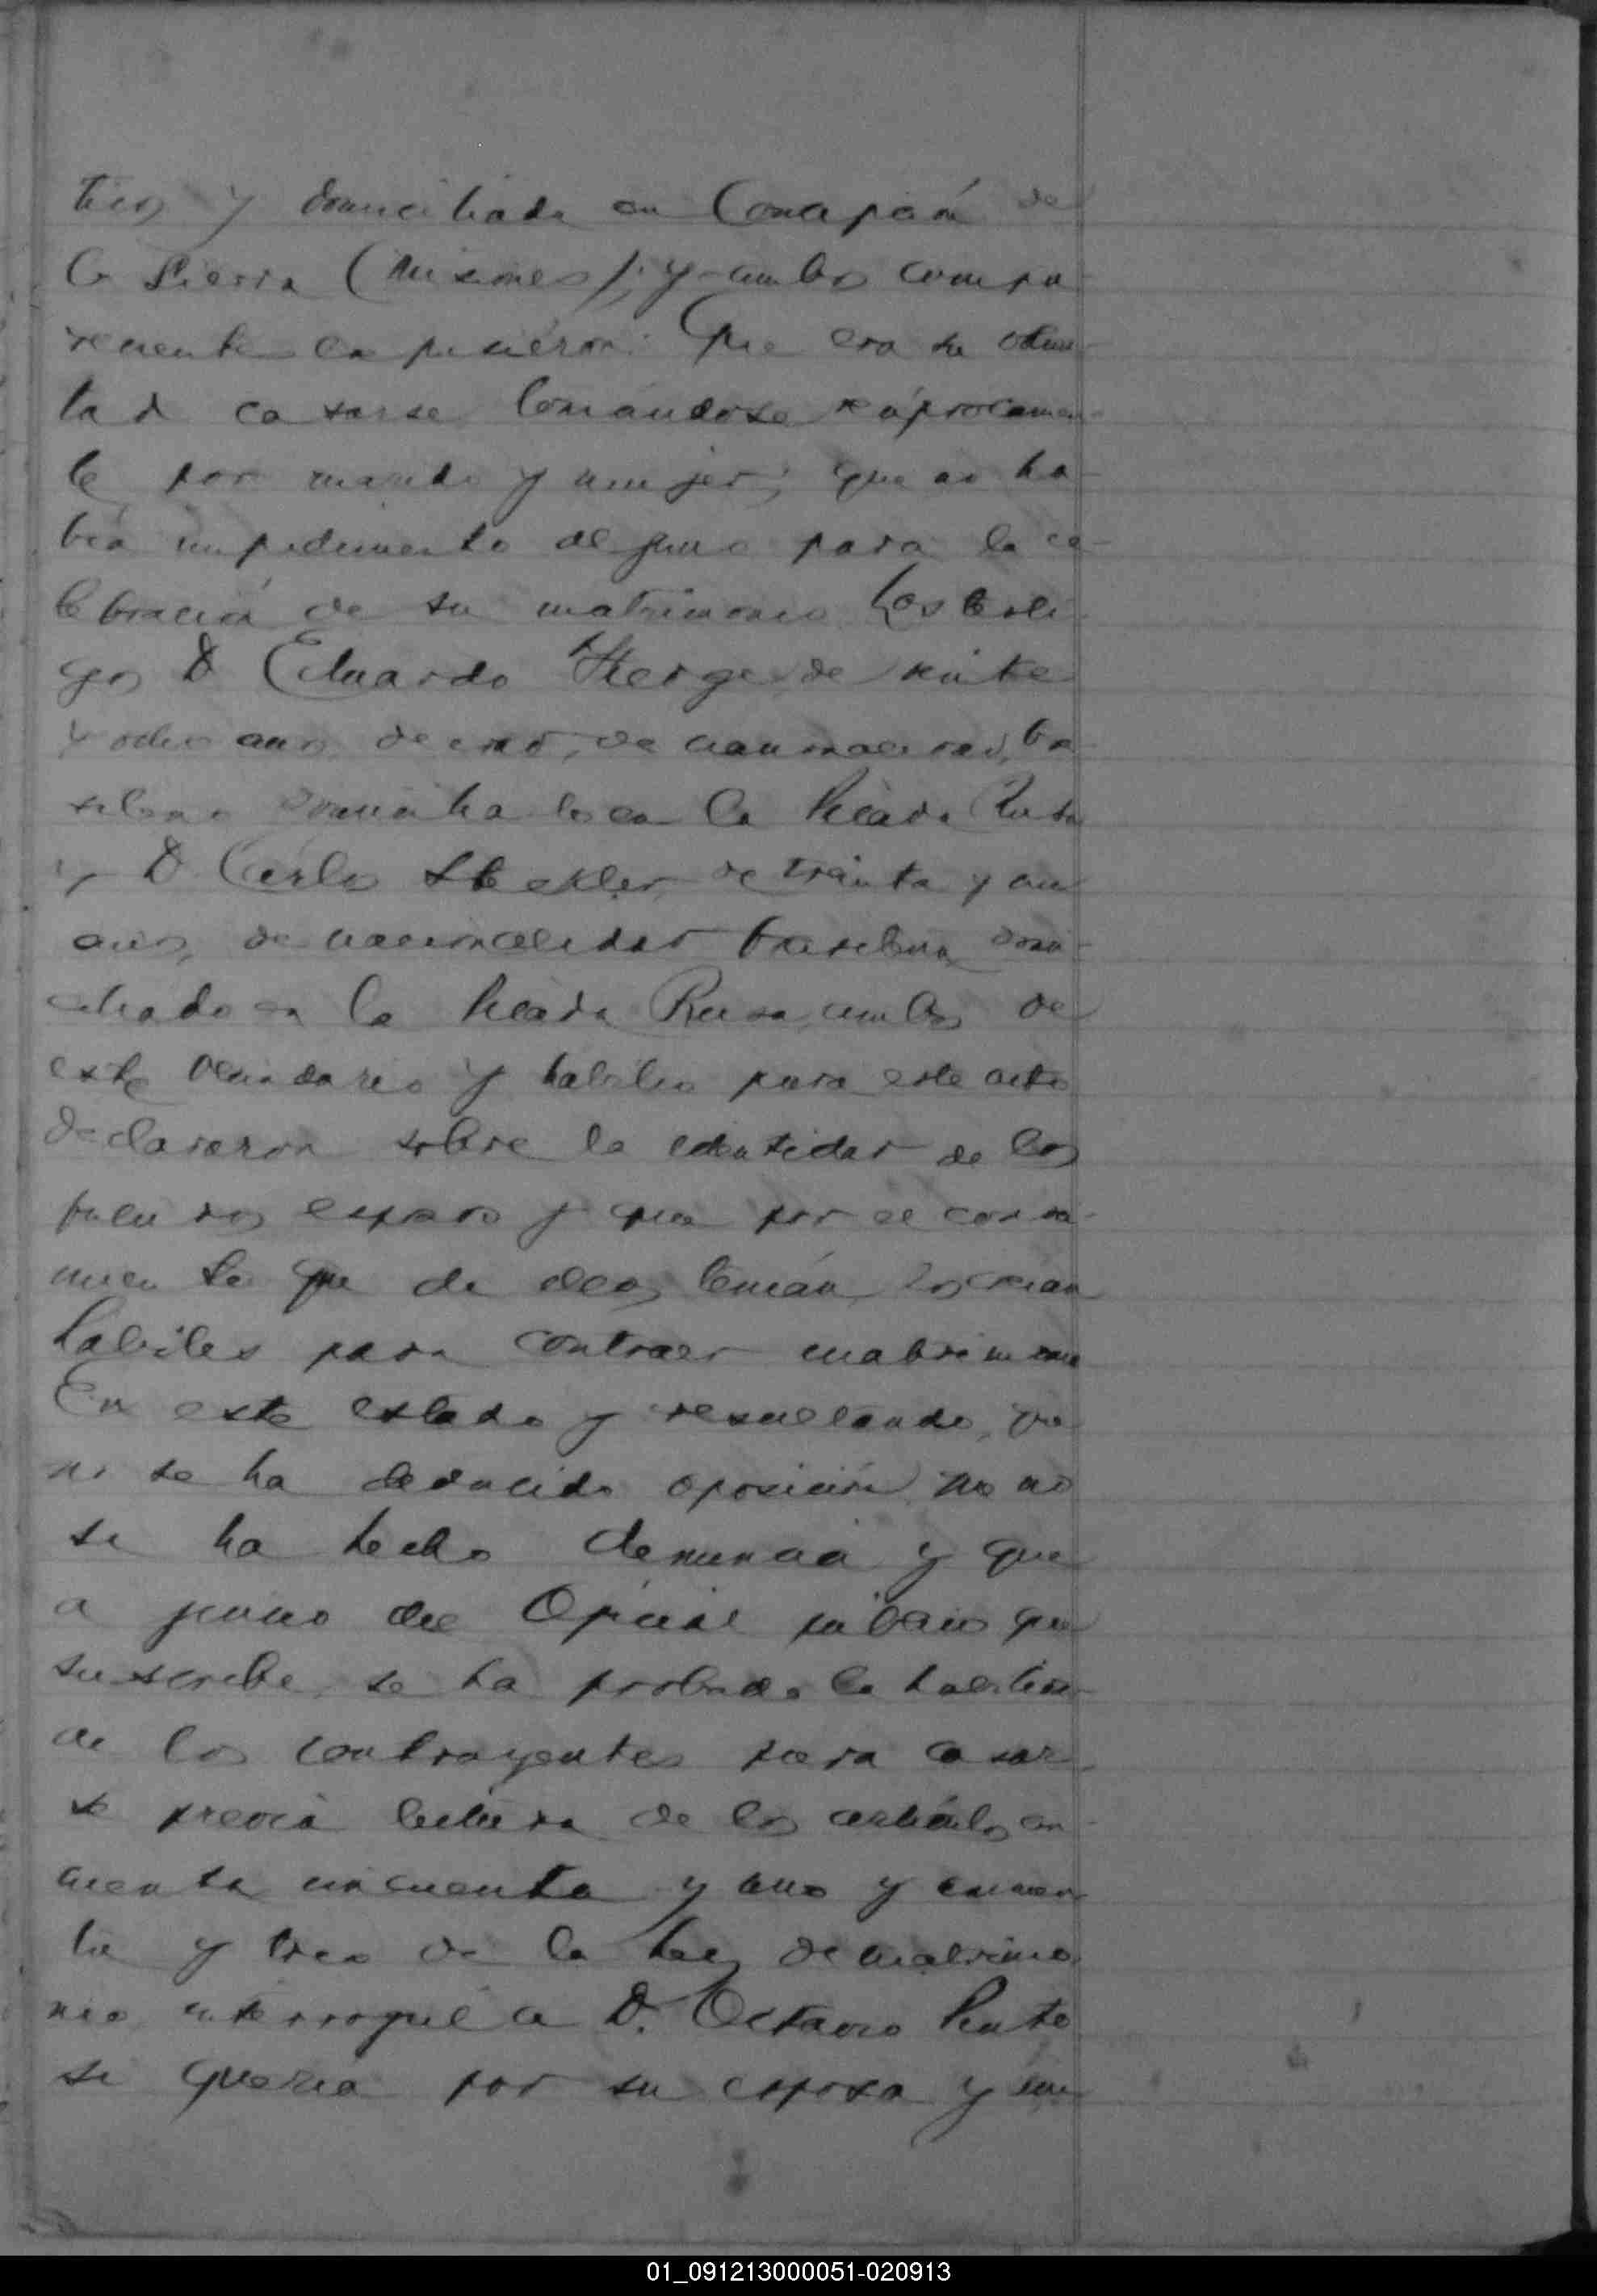 y domiciliada en Concepción de
la Sierra (Misiones); y ambos compa-
recientes expusieron: Que era su volun-
tad casarse tomándose recíprocamen-
te por marido y mujer; que no ha-
bía impedimento alguno para la ce-
lebración de su matrimonio. Los testi-
gos D Eduardo de veinte
y ocho años de edad, de nacionalidad, bra-
silera domiciliado en la Picada Rusa
y D. Carlos de treinta y un
años, de nacionalidad brasilera domi-
ciliado en la Picada Rusa, ambos de
este vecindario y habiles para este acto
declararon sobre la identidad de los
futuros esposos y que por el conoci-
miento que de ellos tenían, los creían
habiles para contraer matrimonio
En este estado y resultando, que
no se ha deducido oposición, que no
se ha hecho denuncia y que
a juicio del Oficial público que
suscribe, se ha probado la habilidad
de los contrayentes para casar-
se previa lectura de los artículos cin-
cuenta cincuenta y uno y cincuen-
ta y tres de la Ley de matrimo-
nio, interrogué a D. Octavio
si quería por su esposa y mu-
01_091213000051-020913